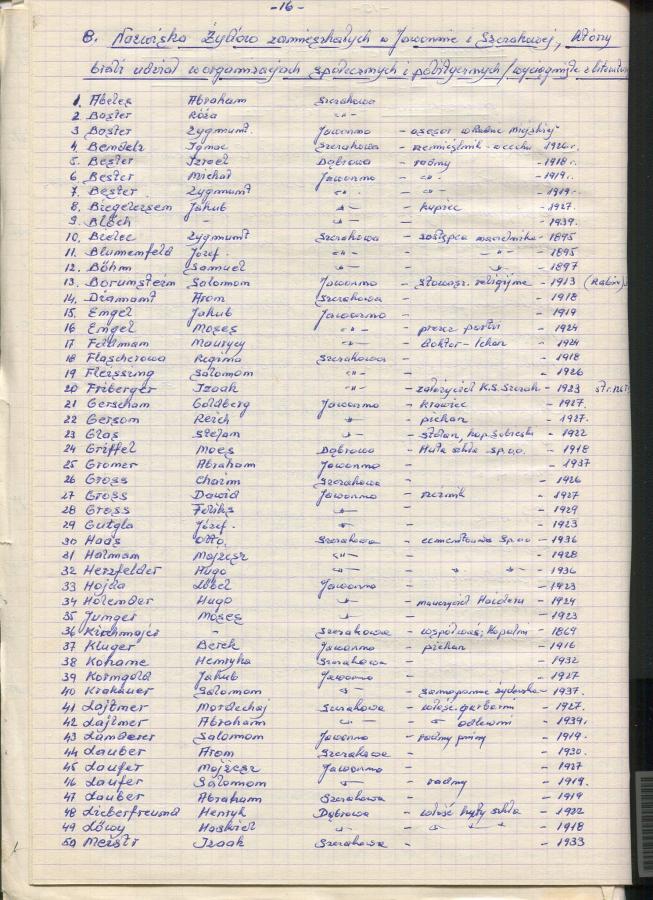 -16-
8. Nazwiska Żydów zamieszkałych w Jaworznie i Szczakowej, którzy
brali udział w organizacjach społecznych i politycznych /wyciągnięte z
1. Abeles Abraham Szczakowa
2 Bester Róża -"-
3 Bester Zygmunt. Jaworzno - asesor władz miejskiej
4. Bendetz Ignac Szczakowa - rzemieślnik - w cechu 1926 r.
5. Bester Izrael Dąbrowa - radny - 1918 r.
6. Bester Michał Jaworzno - -"- - 1919 r.
7. Bester Zygmunt -"- - -"- - 1919 -
8. Biegeleisem Jakub -"- - kupiec - 1927.
9. Bloch - -"- - - 1939.
10. Bielec Zygmunt Szczakowa - zastępca naczelnika - 1895
11. Blumenfeld Józef. -"- - -"- - 1895
12. Böhm Samuel -"- - -"- - 1897
13. Borumsteim Salomon Jaworzno - stowarz. religijne - 1913 (Rabin)
14. Diamant Aron Szczakowa - - 1918
15. Engel Jakub Jaworzno - - 1919
16 Engel Moses -"- - prezes partii - 1924
17 Feldman Maurycy -"- - doktor-lekarz - 1924
18 Flascherowa Regina Szczakowa - - 1918
19 Fleissing Salomon -"- - 1926
20 Friberger Izaak -"- - założyciel K.S. Szczak - 1923
21 Gerscham Goldberg Jaworzno - krawiec - 1927.
22 Gersom Reich -"- - piekarz - 1927.
23 Glas Stefan -"- - Sztolan, kop. Sobieski - 1922
24 Griffel Moes Dąbrowa - Huta szkła Sp.o.o. - 1918
25 Gromer Abraham Jaworzno - - 1937
26 Gross Chaim Szczakowa - 1926
27 Gross Dawid Jaworzno - rzeźnik - 1927
28 Gross Feliks -"- - 1929
29 Gutgla Józef. -"- - 1923
30 Haas Otto. Szczakowa - cementownia Sp.oo - 1936
31 Halman Mojżesz -"- - 1928
32 Herzfelder Hugo -"- - -"- -"- - 1936
33 Hojda Löbel Jaworzno - - 1923
34 Holender Hugo -"- - nauczyciel Haideru - 1924
35 Junger Moses -"- - 1923
36 Kirchmajer - Szczakowa - współwłaś. Kopalni - 1869
37 Kluger Berek Jaworzno - piekarz - 1916
38 Kohane Henryka Szczakowa - - 1932
39 Korngold Jakub Jaworzno - 1927
40 Krakauer Salomon -"- - samopomoc żydowska - 1937.
41 Lajtner Mordechaj Szczakowa - właśc. garbarni - 1927.
42 Lajtner Abraham -"- - -"- odlewni - 1939.
43 Landerer Salomon Jaworzno - radny gminy - 1919.
44 Lauber Aron Szczakowa - - 1930.
45 Laufer Mojżesz Jaworzno - - 1927
46 Laufer Salomon -"- - radny - 1919.
47 Lauber Abraham Szczakowa - - 1919
48 Lieberfreund Henryk Dąbrowa - właśc huty szkła - 1922
49 Löwy Haskiel -"- - -"- -"- -"- - 1918
50 Meistr Izaak Szczakowa - - 1933